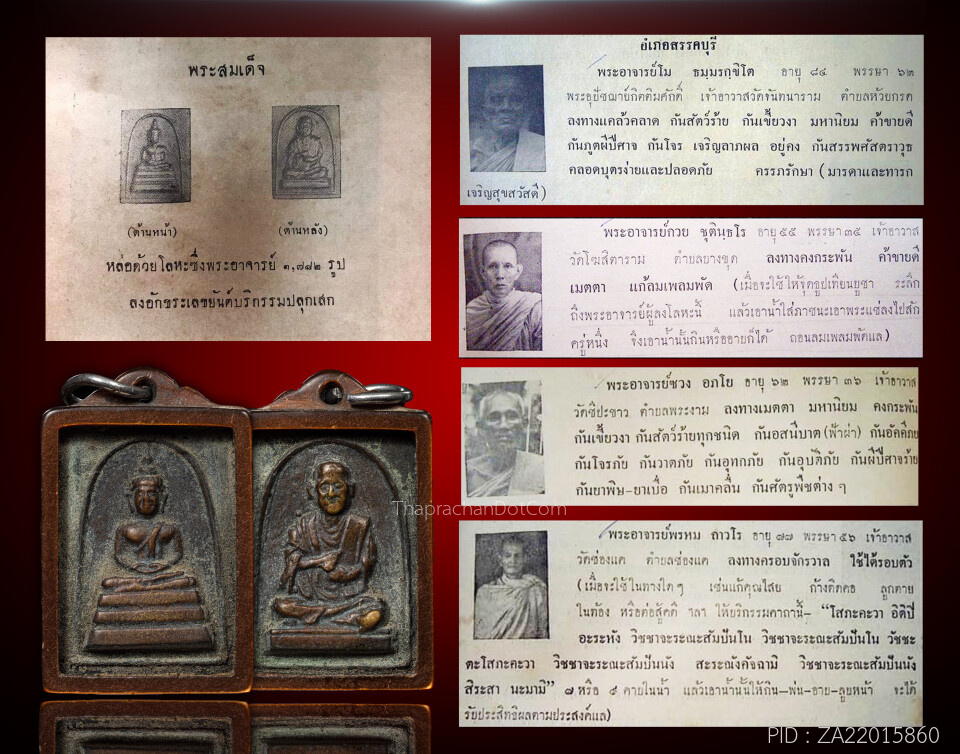 พระสมเด็จ
(ด้านหน้า) (ด้านหลัง)
หล่อด้วยโลหะซึ่งพระอาจารย์ ๑,๗๗๒ รูป
ลงอักขระเลขยันต์บริกรรมปลุกเสก
อำเภอสรรคบุรี
พระอาจารย์โม ธมฺมรกฺขิโต อายุ ๘๔ พรรษา ๖๒
พระอุปัชฌาย์กิตติมศักดิ์ เจ้าอาวาสวัดจันทนาราม ตำบลห้วยกรด
ลงทางแคล้วคลาด กันสัตว์ร้าย กันเขี้ยวงา มหานิยม ค้าขายดี
กันภูตผีปีศาจ กันโจร เจริญลาภผล อยู่คง กันสรรพศัสตราวุธ
คลอดบุตรง่ายและปลอดภัย ครรภรักษา (มารดาและทารก
เจริญสุขสวัสดี)
พระอาจารย์กวย ชุตินฺธโร อายุ ๕๕ พรรษา ๓๕ เจ้าอาวาส
วัดโฆสิตาราม ตำบลบางขุด ลงทางคงกระพัน ค้าขายดี
เมตตา แก้ลมเพลมพัด (เมื่อจะใช้ให้จุดธูปเทียนบูชา ระลึก
ถึงพระอาจารย์ผู้ลงโลหะนี้ แล้วเอาน้ำใส่ภาชนะเอาพระแช่ลงไปสัก
ครู่หนึ่ง จึงเอาน้ำนั้นกินหรืออาบก็ได้ ถอนลมเพลมพัดแล)
พระอาจารย์ชวง อภโย อายุ ๖๒ พรรษา ๓๖ เจ้าอาวาส
วัดชีปะขาว ตำบลพระงาม ลงทางเมตตา มหานิยม คงกระพัน
กันเขี้ยวงา กันสัตว์ร้ายทุกชนิด กันอสนีบาต (ฟ้าผ่า) กันอัคคีภัย
กันโจรภัย กันวาตภัย กันอุทกภัย กันอุปัติภัย กันผีปีศาจร้าย
กันยาพิษ-ยาเบื่อ กันเมาคลื่น กันศัตรูพืชต่าง ๆ
พระอาจารย์พรหม ถาวโร อายุ ๗๗ พรรษา ๕๖ เจ้าอาวาส
วัดช่องแค ตำบลช่องแค ลงทางครอบจักรวาล ใช้ได้รอบตัว
(เมื่อจะใช้ในทางใดๆ เช่นแก้คุณไสย ก้างติดคอ ลูกตาย
ในท้อง หรือต่อสู้คดี ฯลฯ ให้บริกรรมคาถานี้- “โสภะคะวา อิติปิ
อะระหัง วิชชาจะระณะสัมปันโน วิชชาจะระณะสัมปันโน วัชชะ
ตะโสภะคะวา วิชชาจะระณะสัมปันนัง สะระณังคัจฉามิ วิชชาจะระณะสัมปันนัง
สิระสา นะมามิ” ๗ หรือ ๙ คาบในน้ำ แล้วเอาน้ำนั้นให้กิน-พ่น-อาบ-ลูบหน้า จะได้
รับประสิทธิผลตามประสงค์แล)
ThaprachanDotCom
PID : ZA22015860